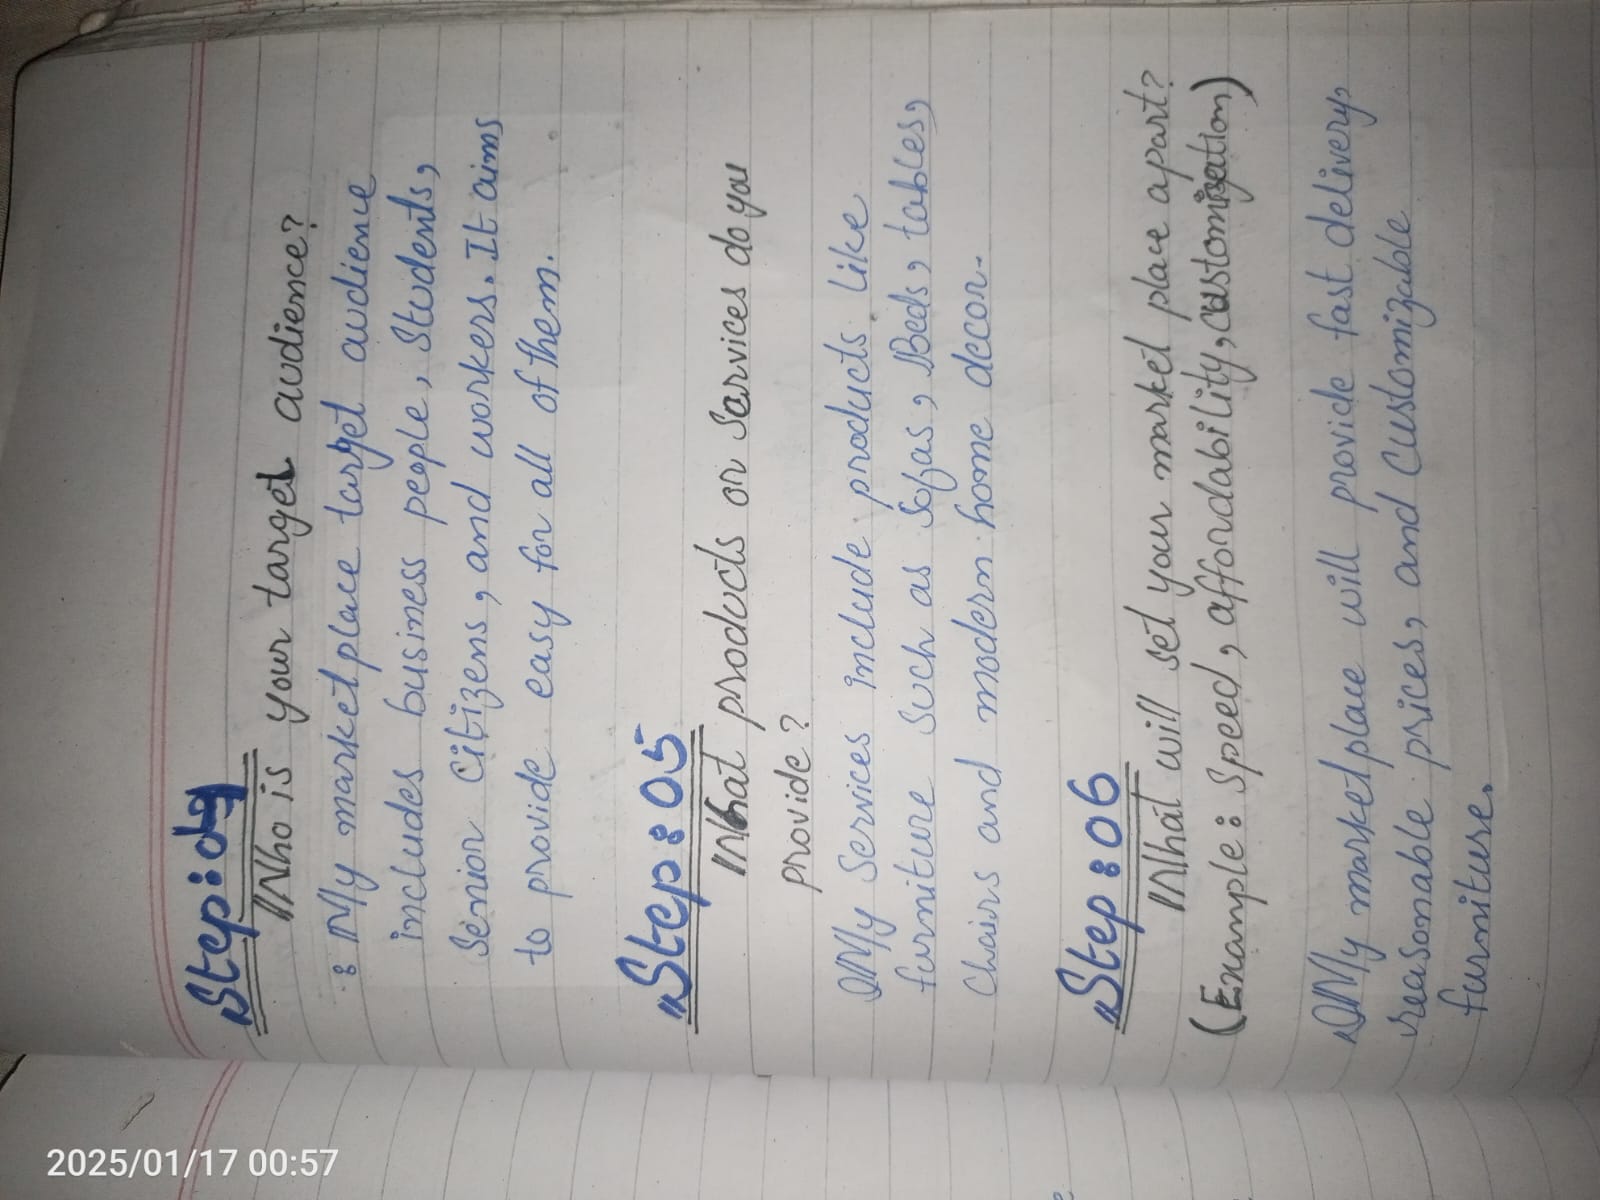 "Step:04
Who is your target audience?
: My marketplace target audience
includes business people, Students,
Senior Citizens, and workers. It aims
to provide easy for all of them.
"Step:05
What products or Sarvices do you
provide?
My Services include products like
furniture such as Sofas, Beds, tables,
Chairs and modern home decor.
"Step:06
What will set your market place apart?
(Example: Speed, affordability, customization)
My marketplace will provide fast delivery,
reasonable prices, and Customizable
furniture.
2025/01/17 00:57